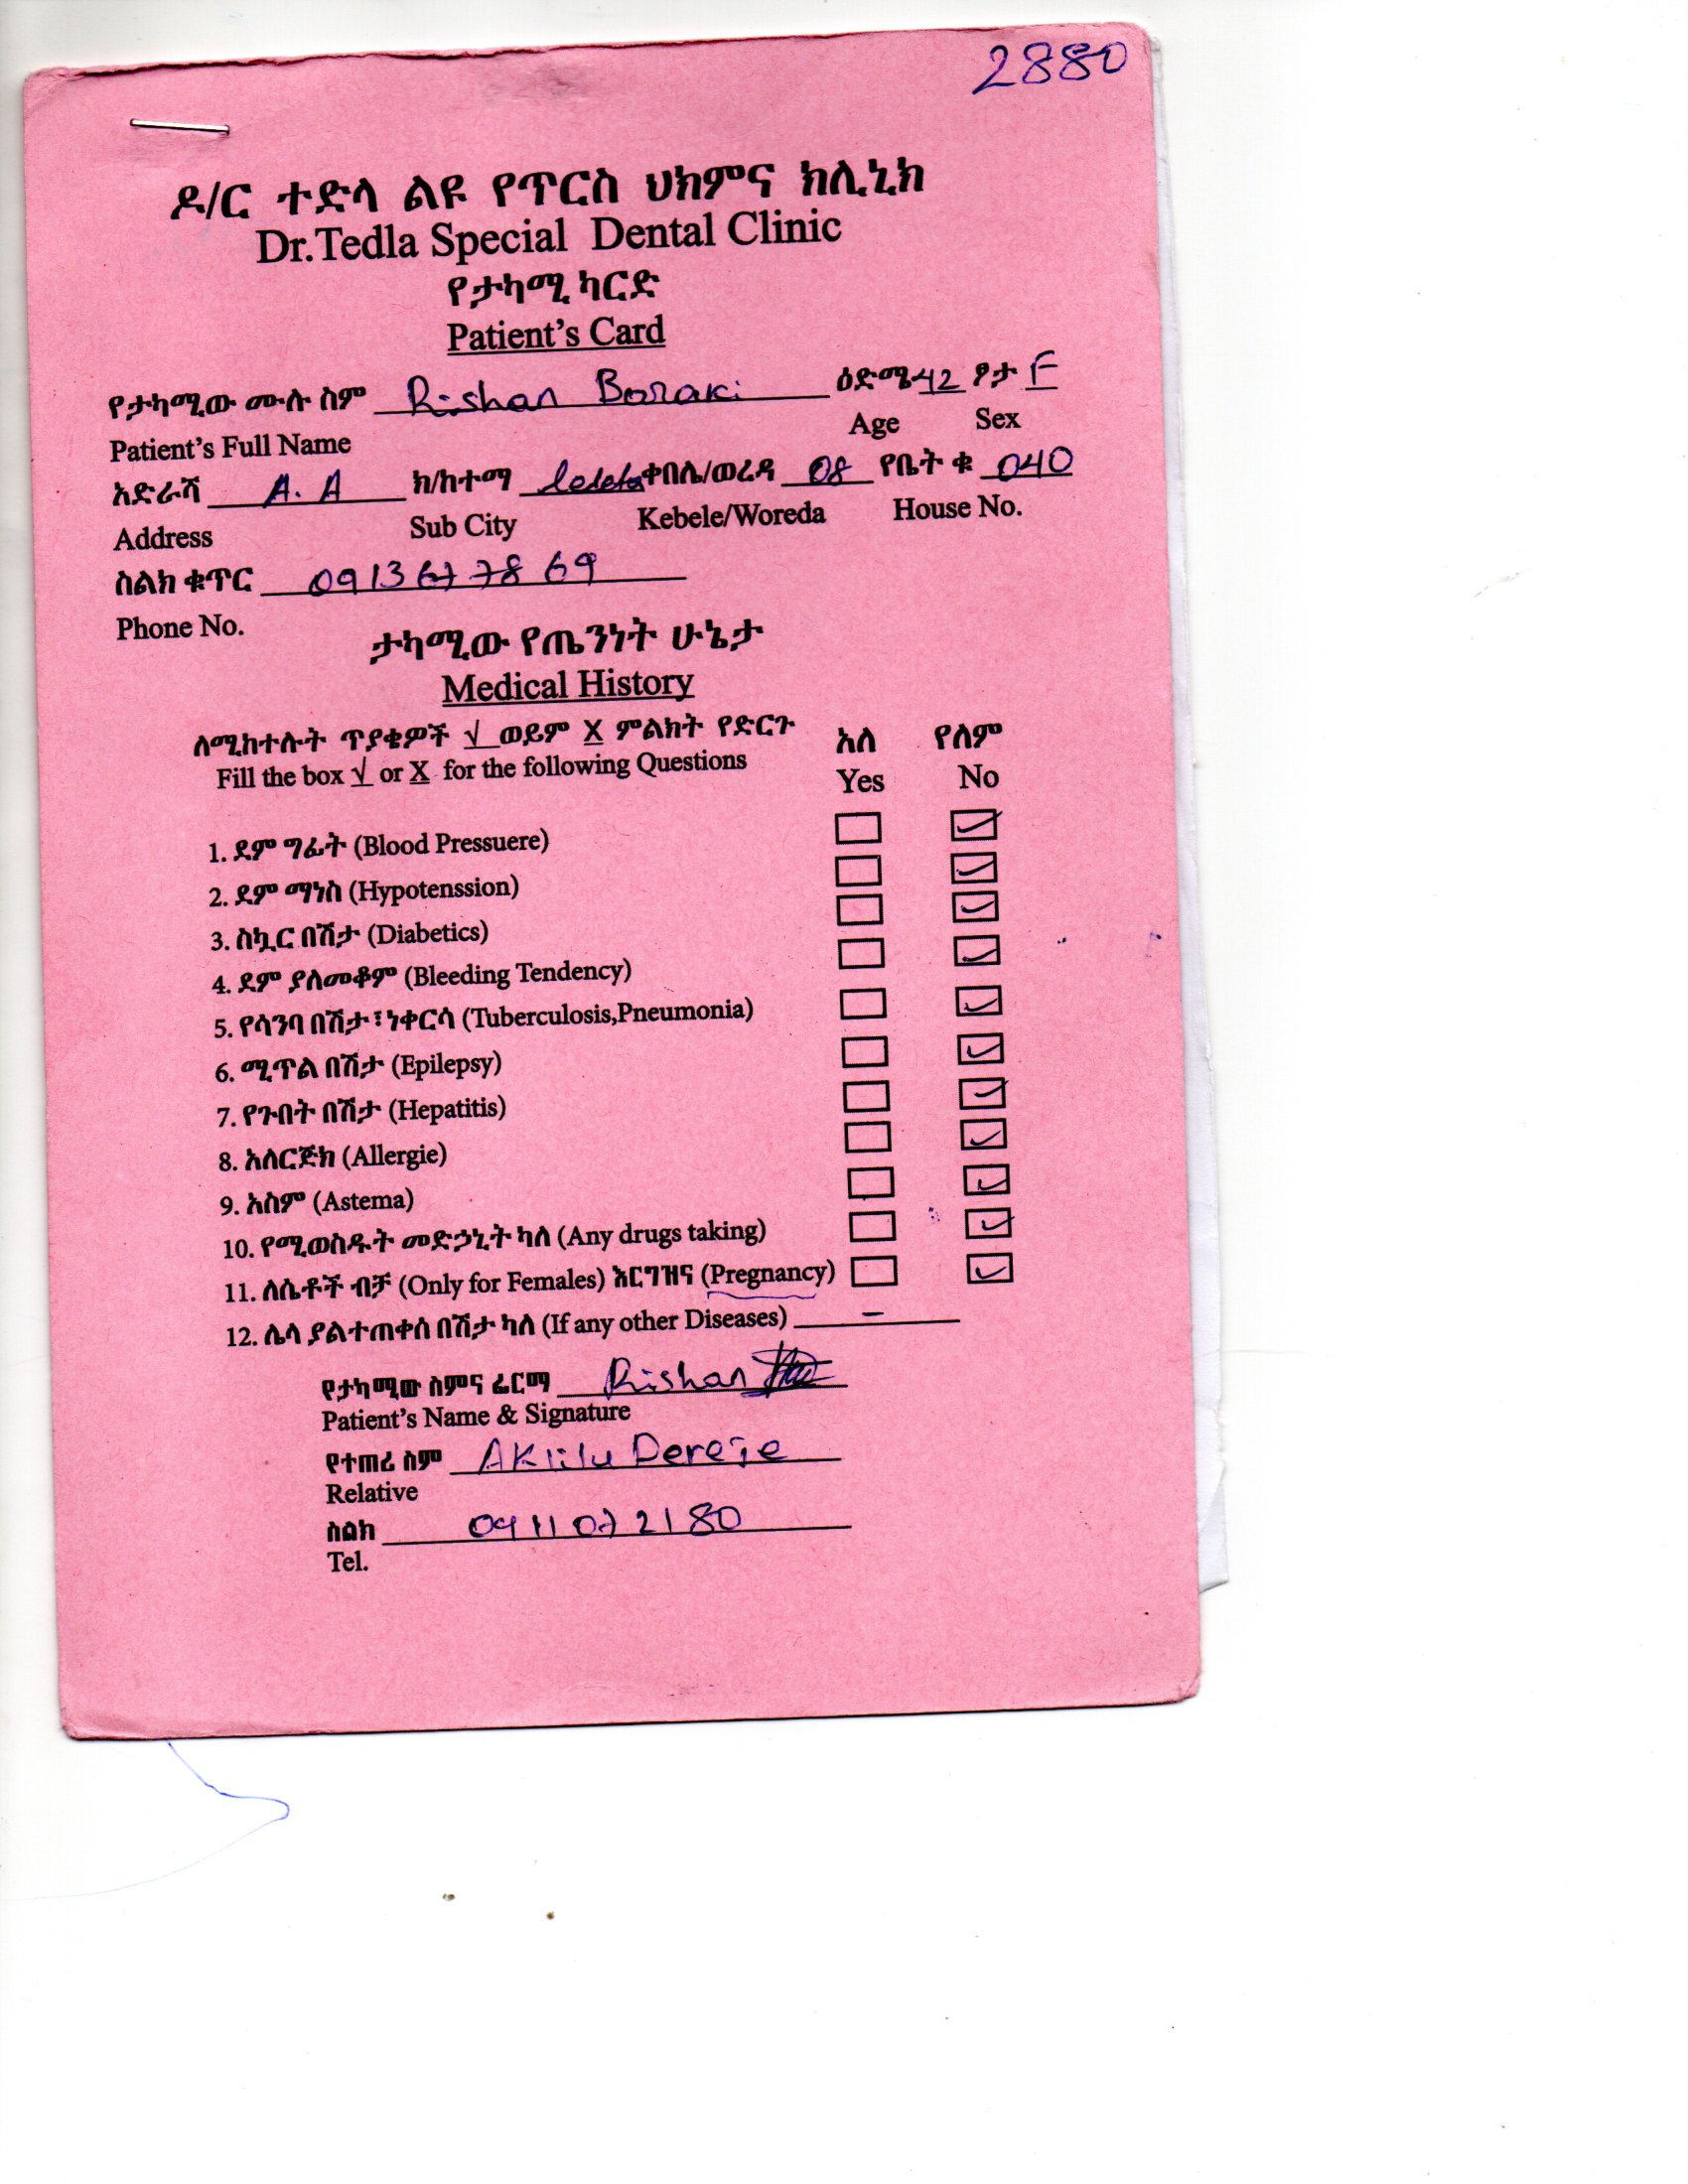 2880
ዶ/ር ተድላ ልዩ የጥርስ ህክምና ክሊኒክ
Dr.Tedla Special Dental Clinic
የታካሚ ካርድ
Patient's Card
የታካሚው ሙሉ ስም Rishan Baraki ዕድሜ 42 ፆታ F
Patient's Full Name Age Sex
አድራሻ A.A ክ/ከተማ ledeta ቀበሌ/ወረዳ 08 የቤት ቁ 040
Address Sub City Kebele/Woreda House No.
ስልክ ቁጥር 0913677869
Phone No.
ታካሚው የጤንነት ሁኔታ
Medical History
ለሚከተሉት ጥያቄዎች √ ወይም X ምልክት የድርጉ አለ የለም
Fill the box √ or X for the following Questions Yes No
1. ደም ግፊት (Blood Pressuere) ☐ ☑
2. ደም ማነስ (Hypotenssion) ☐ ☑
3. ስኳር በሽታ (Diabetics) ☐ ☑
4. ደም ያለመቆም (Bleeding Tendency) ☐ ☑
5. የሳንባ በሽታ፣ነቀርሳ (Tuberculosis,Pneumonia) ☐ ☑
6. ሚጥል በሽታ (Epilepsy) ☐ ☑
7. የጉበት በሽታ (Hepatitis) ☐ ☑
8. አለርጅክ (Allergie) ☐ ☑
9. አስም (Astema) ☐ ☑
10. የሚወስዱት መድኃኒት ካለ (Any drugs taking) ☐ ☑
11. ለሴቶች ብቻ (Only for Females) እርግዝና (Pregnancy) ☐ ☑
12. ሌላ ያልተጠቀሰ በሽታ ካለ (If any other Diseases) –
የታካሚው ስምና ፊርማ Rishan
Patient's Name & Signature
የተጠሪ ስም Aklilu Dereje
Relative
ስልክ 0911072180
Tel.